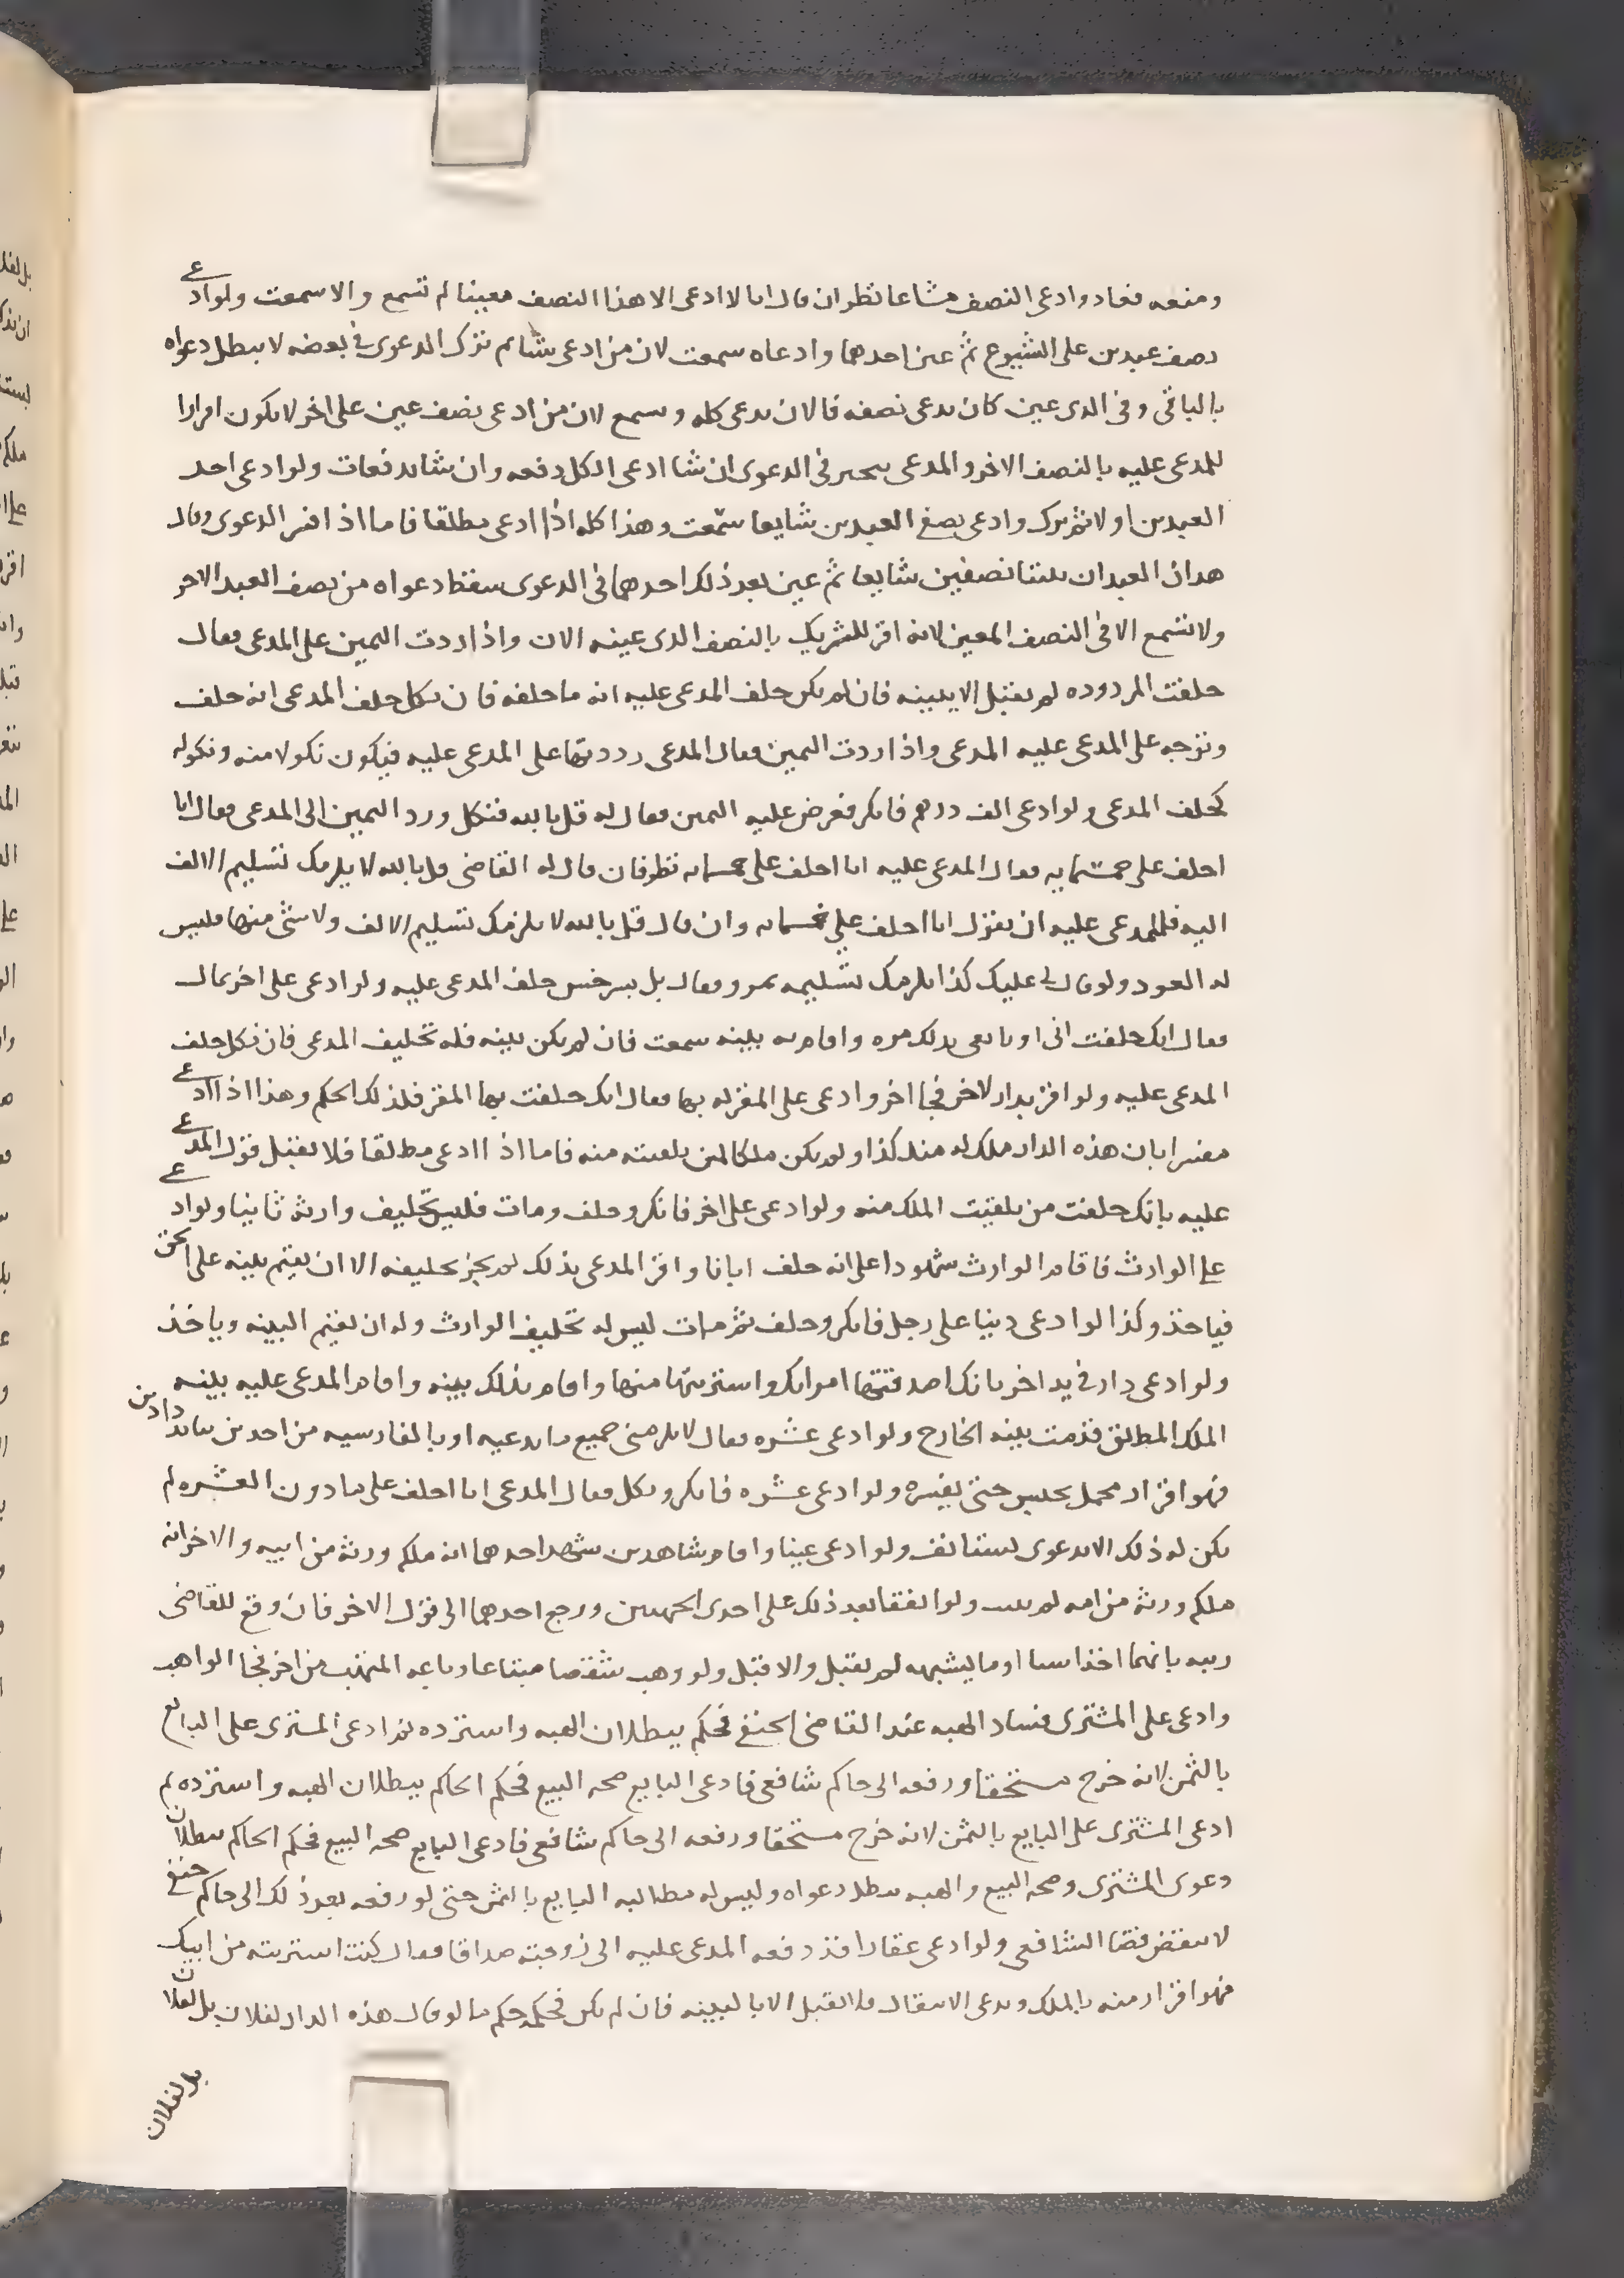 ومنعه فعاد وادعى النصف مشاعا نظر ان قال انا لا ادعى الا هذا النصف معينا لم تسمع والا سمعت ولو ادعى
نصف عبدين على الشيوع ثم عين احدهما وادعاه سمعت لان من ادعى شيا ثم ترك الدعوى في بعضه لا يبطل دعواه
بالباقي وفي الذى عين كان يدعى نصفه فالان يدعى كله ويسمع لان من ادعى نصف عين على اخر لا يكون اقرارا
للمدعى عليه بالنصف الاخر والمدعى يتخير في الدعوى ان شا ادعى الكل دفعه وان شا بدفعات ولو ادعى احد
العبدين اولا ثم ترك وادعى نصف العبدين شايعا سمعت وهذا كله اذا ادعى مطلقا فاما اذا فسر الدعوى وقال
هذان العبدان بيننا نصفين شايعا ثم عين بعد ذلك احدهما في الدعوى سقط دعواه من نصف العبد الاخر
ولا تسمع الا في النصف المعين لانه اقر للشريك بالنصف الذى عينه الان واذا ردت اليمين على المدعى فقال
حلفت المردوده لم يقبل الا ببينه فان لم يكن حلف المدعى عليه انه ما حلفه فان نكل حلف المدعى انه حلف
وتوجه على المدعى عليه المدعى واذا ردت اليمين فقال المدعى رددتها على المدعى عليه فيكون نكولا منه ونكوله
كحلف المدعى ولو ادعى الف درهم فانكر فعرض عليه اليمين فقال له قل بالله فنكل ورد اليمين الى المدعى فقال انا
احلف على خمسمايه فقال المدعى عليه انا احلف على خمسمايه نظر فان قال له القاضى قل بالله لا يلزمك تسليم الالف
اليه فللمدعى عليه ان يقول انا احلف على خمسمايه وان قال قل بالله لا يلزمك تسليم الالف ولا شئ منها فليس
له العود ولو قال لي عليك كذا يلزمك تسليمه بمرو فقال بل بسرخس حلف المدعى عليه ولو ادعى على اخر بمال
فقال انك حلفت انى او بايعى بذلك مره واقام به بينه سمعت فان لم يكن بينه فله تحليف المدعى فان نكل حلف
المدعى عليه ولو اقر بدار لاخر فجا اخر وادعى على المقر له بها فقال انك حلفت بها المقر فلذلك الحكم وهذا اذا ادعى
مفسرا بان هذه الدار ملك له منذ كذا ولم يكن ملكا لمن تلقيته منه فاما اذا ادعى مطلقا فلا يقبل قول المدعى
عليه بانك حلفت من تلقيت الملك منه ولو ادعى على اخر فانكر وحلف ومات فليس تحليف وارثه ثانيا ولو ادعى
على الوارث فاقام الوارث شهودا على انه حلف ابانا واقر المدعى بذلك لم يجز تحليفه الا ان يقيم بينه على الحق
فياخذ وكذا لو ادعى دينا على رجل فانكر وحلف ثم مات ليس له تحليف الوارث وله ان يقيم البينه وياخذ
ولو ادعى دار في يد اخر بانك اصدقتها امراتك واشتريتها منها واقام بذلك بينه واقام المدعى عليه بينه
الملك المطلق قدمت بينه الخارج ولو ادعى عشره فقال لا يلزمنى جميع ما يدعيه او بالفارسيه من احد من دادن
فهو اقرار محمل يحبس حتى يفسره ولو ادعى عشره فانكر ونكل فقال المدعى انا احلف على ما دون العشره لم
يكن له ذلك الا بدعوى يستانف ولو ادعى عينا واقام شاهدين شهد احدهما انه ملكه ورثه من ابيه والاخر انه
ملكه ورثه من امه لم يثبت ولو اتفقا بعد ذلك على احدى الجهتين ورجع احدهما الى قول الاخر فان وقع للقاضى
ريبه بانهما اخذا شيا او ما يشبهه لم يقبل والا قبل ولو وهب شقصا مشاعا وباعه المتهب من اخر فجا الواهب
وادعى على المشترى فساد الهبه عند القاضى الحنفى فحكم ببطلان الهبه واسترده ثم ادعى المشترى على البايع
بالثمن لانه خرج مستحقا ورفعه الى حاكم شافعى فادعى البايع صحه البيع فحكم الحاكم ببطلان الهبه واسترده ثم
ادعى المشترى على البايع بالثمن لانه خرج مستحقا ورفعه الى حاكم شافعى فادعى البايع صحه البيع فحكم الحاكم ببطلان
دعوى المشترى وصحه البيع والهبه بطل دعواه وليس له مطالبه البايع بالثمن حتى لو رفعه بعد ذلك الى حاكم حنفى
لا ينقض قضا الشافعى ولو ادعى عقارا قد دفعه المدعى عليه الى زوجته صداقا فقال كنت اشتريته من ابيك
فهو اقرار منه بالملك ويدعى الانتقال فلا يقبل الا بالبينه فان لم يكن فحكمه حكم ما لو قال هذه الدار لفلان بل لفلان
بل لفلان